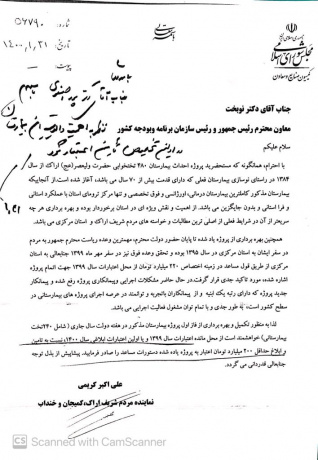 شماره: ۵۷۷۹۰
تاریخ: ۱۴۰۰/۱/۳۱
پیوست:
مجلس شورای اسلامی
کمیسیون صنایع و معادن
جناب آقای دکتر نوبخت
معاون محترم رئیس جمهور و رئیس سازمان برنامه وبودجه کشور
سلام علیکم
با احترام، همانگونه که مستحضرید پروژه احداث بیمارستان ۴۸۰ تختخوابی حضرت ولیعصر(عج) اراک، از سال
۱۳۸۴ در راستای نوسازی بیمارستان فعلی که دارای قدمت بیش از ۷۰ سال می باشد، آغاز شد. از آنجاییکه
بیمارستان مذکور کاملترین بیمارستان درمانی، اورژانسی و فوق تخصصی و تنها مرکز ترومای استان با عملکرد استانی
و فرا استانی و بدون جایگزین می باشد، از اهمیت و نقش ویژه ای در استان برخوردار بوده و بهره برداری هر چه
سریعتر از آن در شرایط فعلی از اصلی ترین مطالبات و خواسته های مردم شریف اراک و استان مرکزی می باشد.
همچنین بهره برداری از پروژه یاد شده تا پایان حضور دولت محترم، مهمترین وعده ریاست محترم جمهور به مردم
در سفر ایشان به استان مرکزی در سال ۱۳۹۵ بوده و تحقق وعده فوق نیز در سفر مهر ماه ۱۳۹۹ جنابعالی به استان
مرکزی از طریق قول مساعد در زمینه اختصاص ۲۲۰ میلیارد تومان از محل اعتبارات سال ۱۳۹۹ جهت اتمام پروژه
اشاره شده، مورد تاکید جدی قرار گرفت. در حال حاضر مشکلات اجرایی وپروژه رفع شده و پیمانکار
جدید پروژه که دارای رتبه یک ابنیه و از پیمانکاران باتجربه و توانمند در عرصه اجرای پروژه های بیمارستانی در
سطح کشور است، به طور جدی و با تمام توان مشغول فعالیت اجرایی می باشد.
لذا به منظور تکمیل و بهره برداری از فاز اول پروژه بیمارستان مذکور در هفته دولت سال جاری (شامل ۲۴۰ تخت
بیمارستانی) خواهشمند است از محل مانده اعتبارات سال ۱۳۹۹ و یا اولین اعتبارات ابلاغی سال ۱۴۰۰، نسبت به تامین
و ابلاغ حداقل ۲۰۰ میلیارد تومان اعتبار به پروژه یاد شده دستورات مساعد را صادر فرمایید. پیشاپیش از بذل توجه
جنابعالی قدردانی می گردد.
علی اکبر کریمی
نماینده مردم شریف اراک، کمیجان و خنداب
CS Scanned with CamScanner